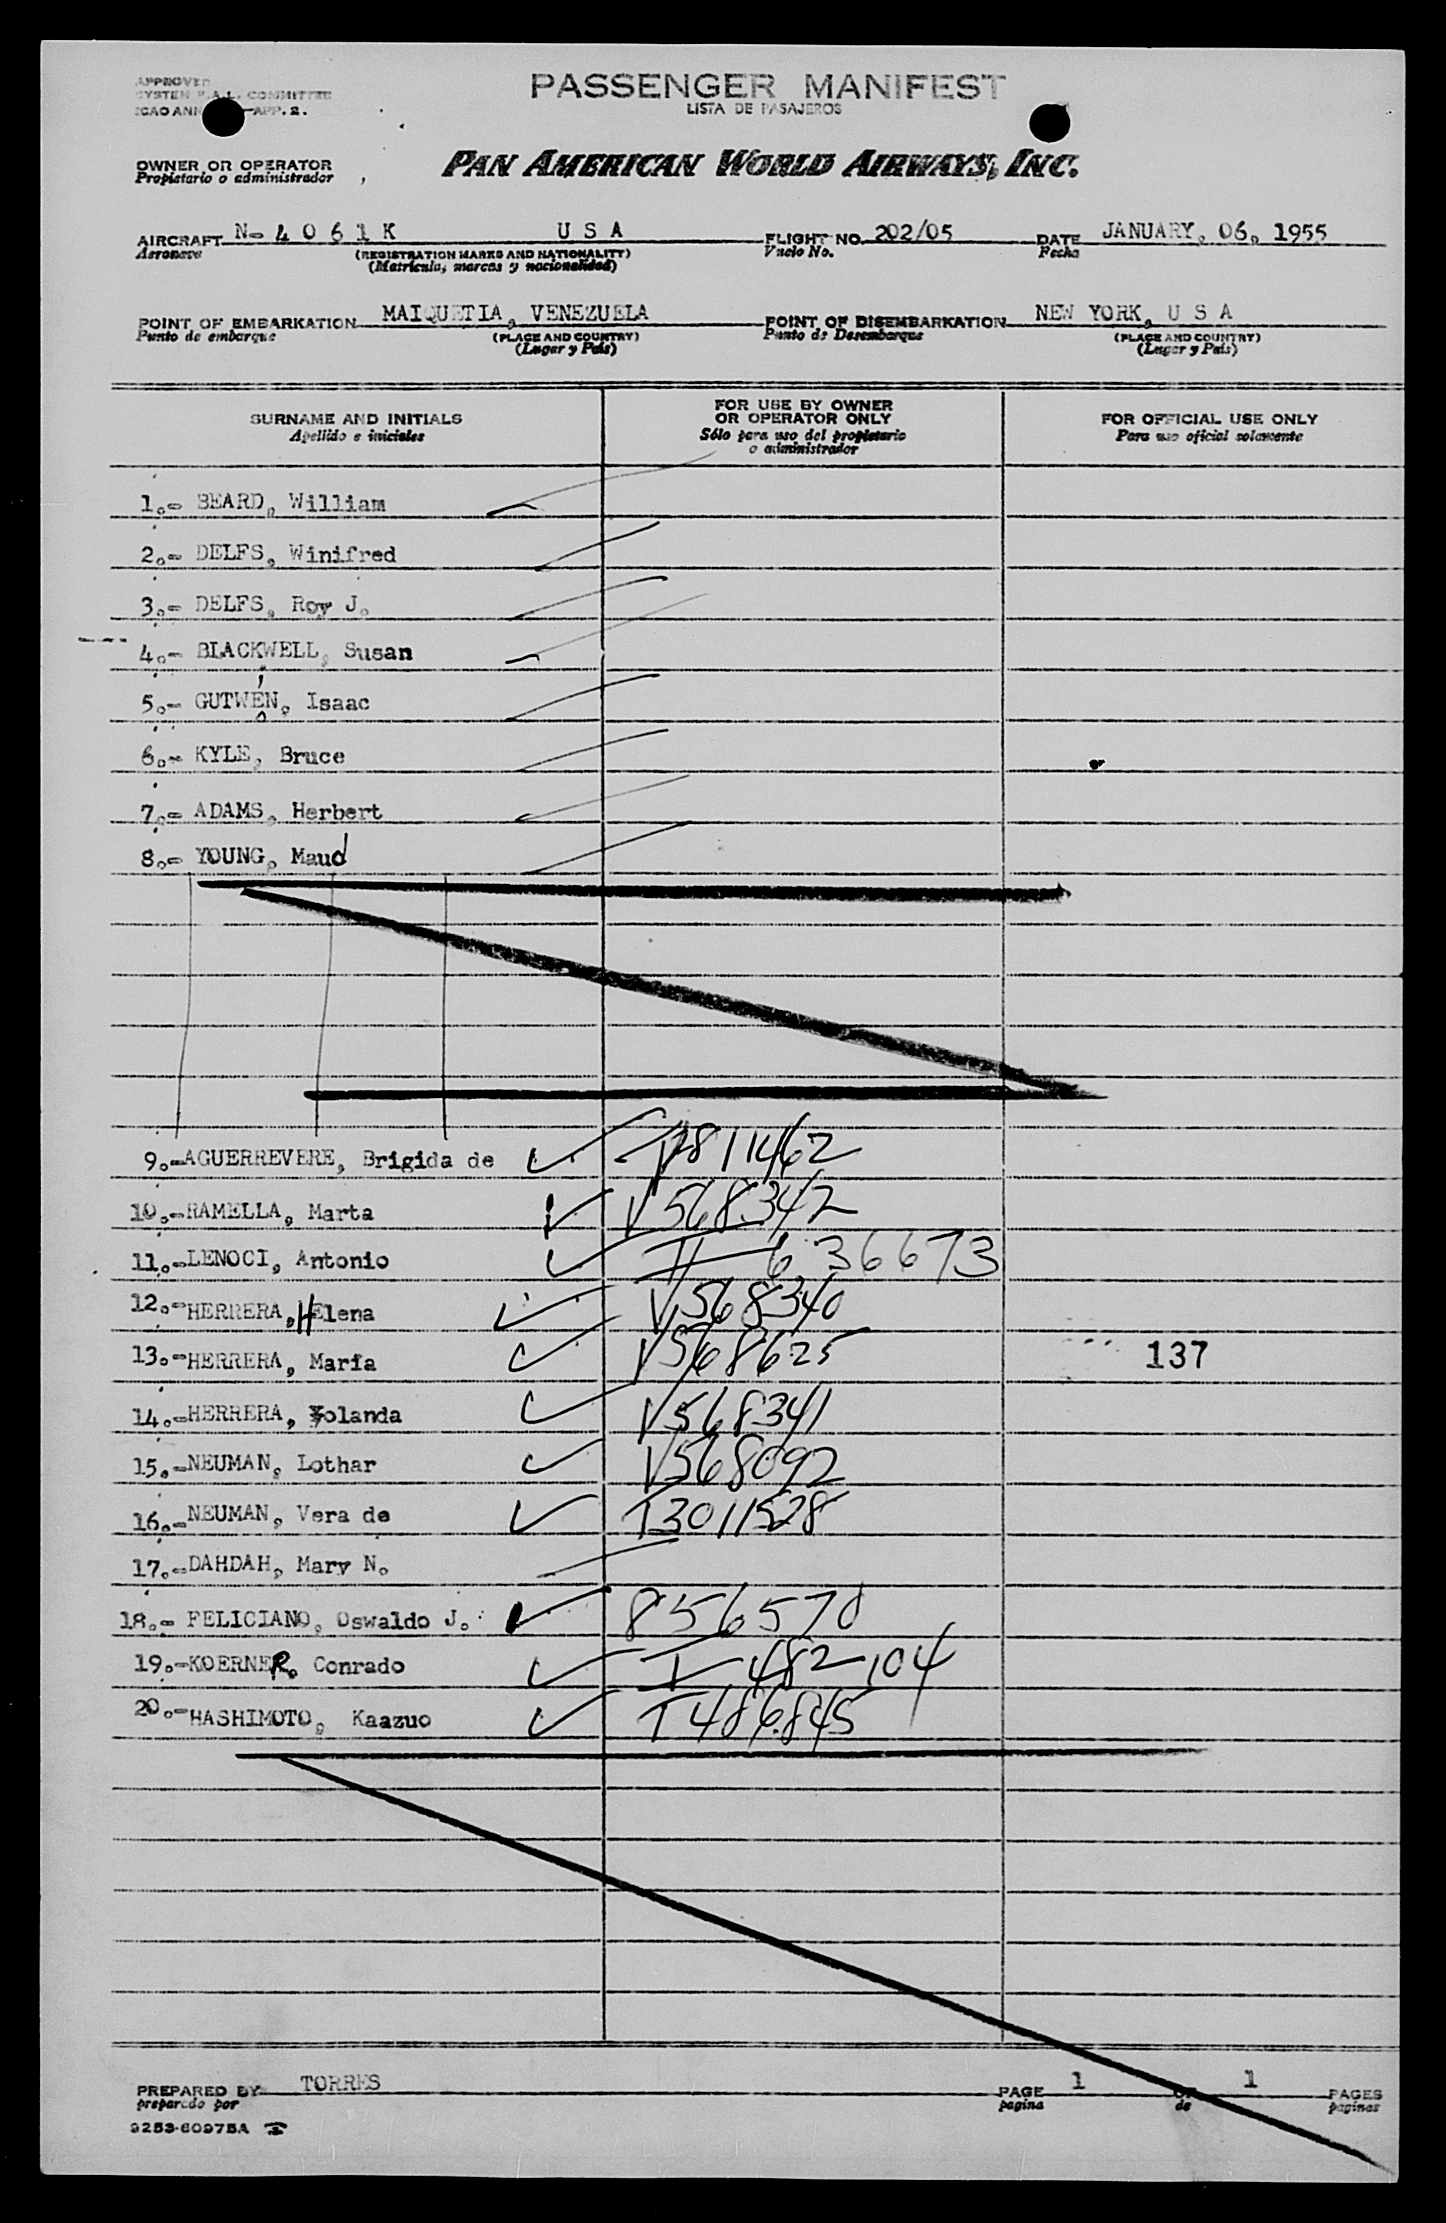 APPROVED
SYSTEM F.A.L. COMMITTEE
ICAO ANN APP. 2.
PASSENGER MANIFEST
LISTA DE PASAJEROS
OWNER OR OPERATOR
Propietario o administrador
PAN AMERICAN WORLD AIRWAYS, INC.
AIRCRAFT N- 4 0 6 1 K U S A FLIGHT NO. 202/05 DATE JANUARY, 06, 1955
Aeronave (REGISTRATION MARKS AND NATIONALITY) Vuelo No. Fecha
(Matrícula, marcas y nacionalidad)
POINT OF EMBARKATION MAIQUETIA, VENEZUELA POINT OF DISEMBARKATION NEW YORK, U S A
Punto de embarque (PLACE AND COUNTRY) Punto de Desembarque (PLACE AND COUNTRY)
(Lugar y País) (Lugar y País)
SURNAME AND INITIALS FOR USE BY OWNER OR OPERATOR ONLY FOR OFFICIAL USE ONLY
Apellido e iniciales Sólo para uso del propietario o administrador Para uso oficial solamente
1.- BEARD, William
2.- DELFS, Winifred
3.- DELFS, Roy J.
4.- BLACKWELL, Susan
5.- GUTWEN, Isaac
6.- KYLE, Bruce
7.- ADAMS, Herbert
8.- YOUNG, Maud
9.-AGUERREVERE, Brigida de 2811462
10.-RAMELLA, Marta V568342
11.-LENOCI, Antonio 636673
12.-HERRERA, HElena V568340
13.-HERRERA, María V568625 137
14.-HERRERA, Yolanda V568341
15.-NEUMAN, Lothar V568092
16.-NEUMAN, Vera de T3011528
17.-DAHDAH, Mary N.
18.- FELICIANO, Oswaldo J. 856570
19.-KOERNER. Conrado T-482104
20.-HASHIMOTO, Kaazuo T486845
PREPARED BY TORRES PAGE 1 OF 1 PAGES
preparado por pagina de paginas
9253-60975A